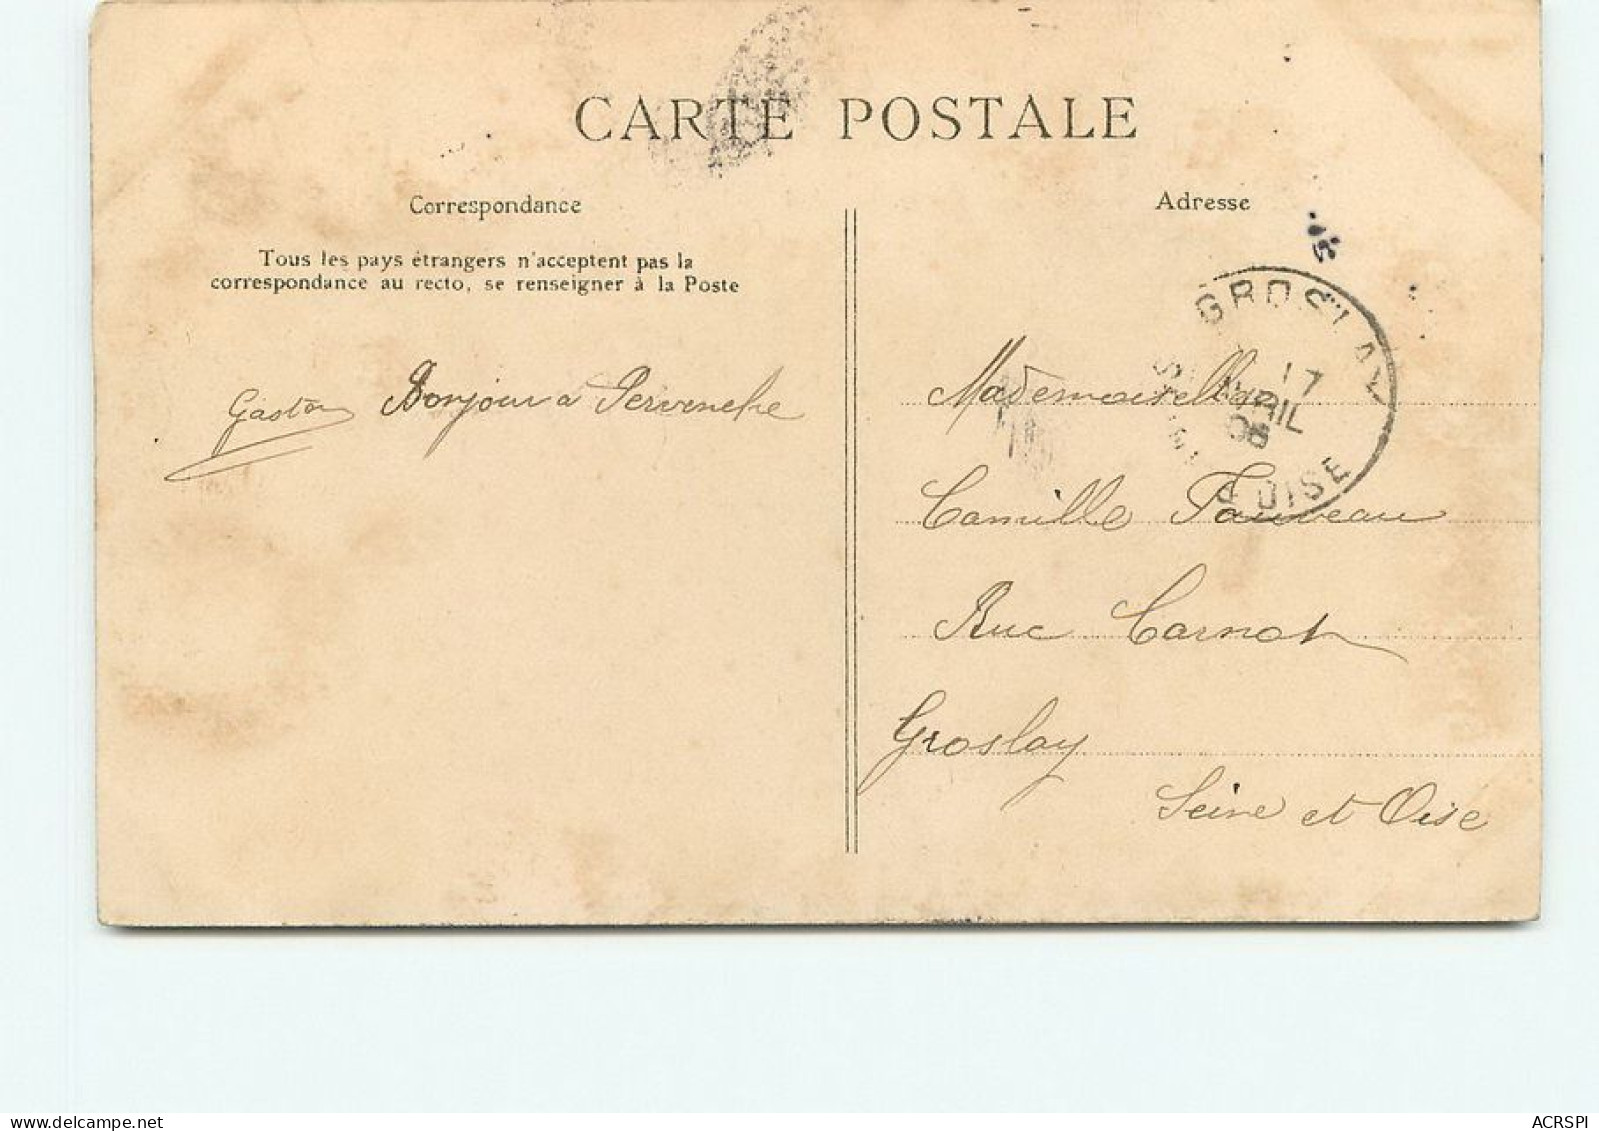 CARTE POSTALE
Correspondance
Tous les pays étrangers n'acceptent pas la
correspondance au recto, se renseigner à la Poste
Gaston Bonjour à Pervenche
Adresse
GROSLAY
17
AVRIL
06
OISE
Mademoiselle
Camille Fauveau
Rue Carnot
Groslay
Seine et Oise
ACRSPI